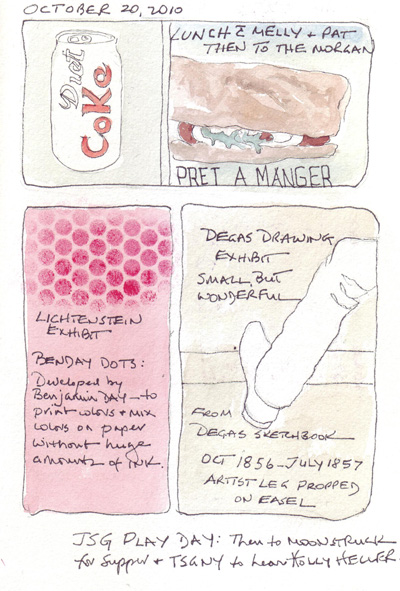 OCTOBER 20, 2010
Diet
Coke
LUNCH c̄ MELLY + PAT
THEN TO THE MORGAN
PRET A MANGER
LICHTENSTEIN
EXHIBIT
BENDAY DOTS:
Developed by
Benjamin DAY - to
print colors + mix
colors on paper
without huge
amounts of INK.
DEGAS DRAWING
EXHIBIT
SMALL BUT
WONDERFUL
FROM
DEGAS SKETCHBOOK
OCT 1856 - JULY 1857
ARTIST LEG PROPPED
ON EASEL
JSG PLAY DAY: Then to MOONSTRUCK
for Supper + TSGNY to hear HOLLY HELLER.